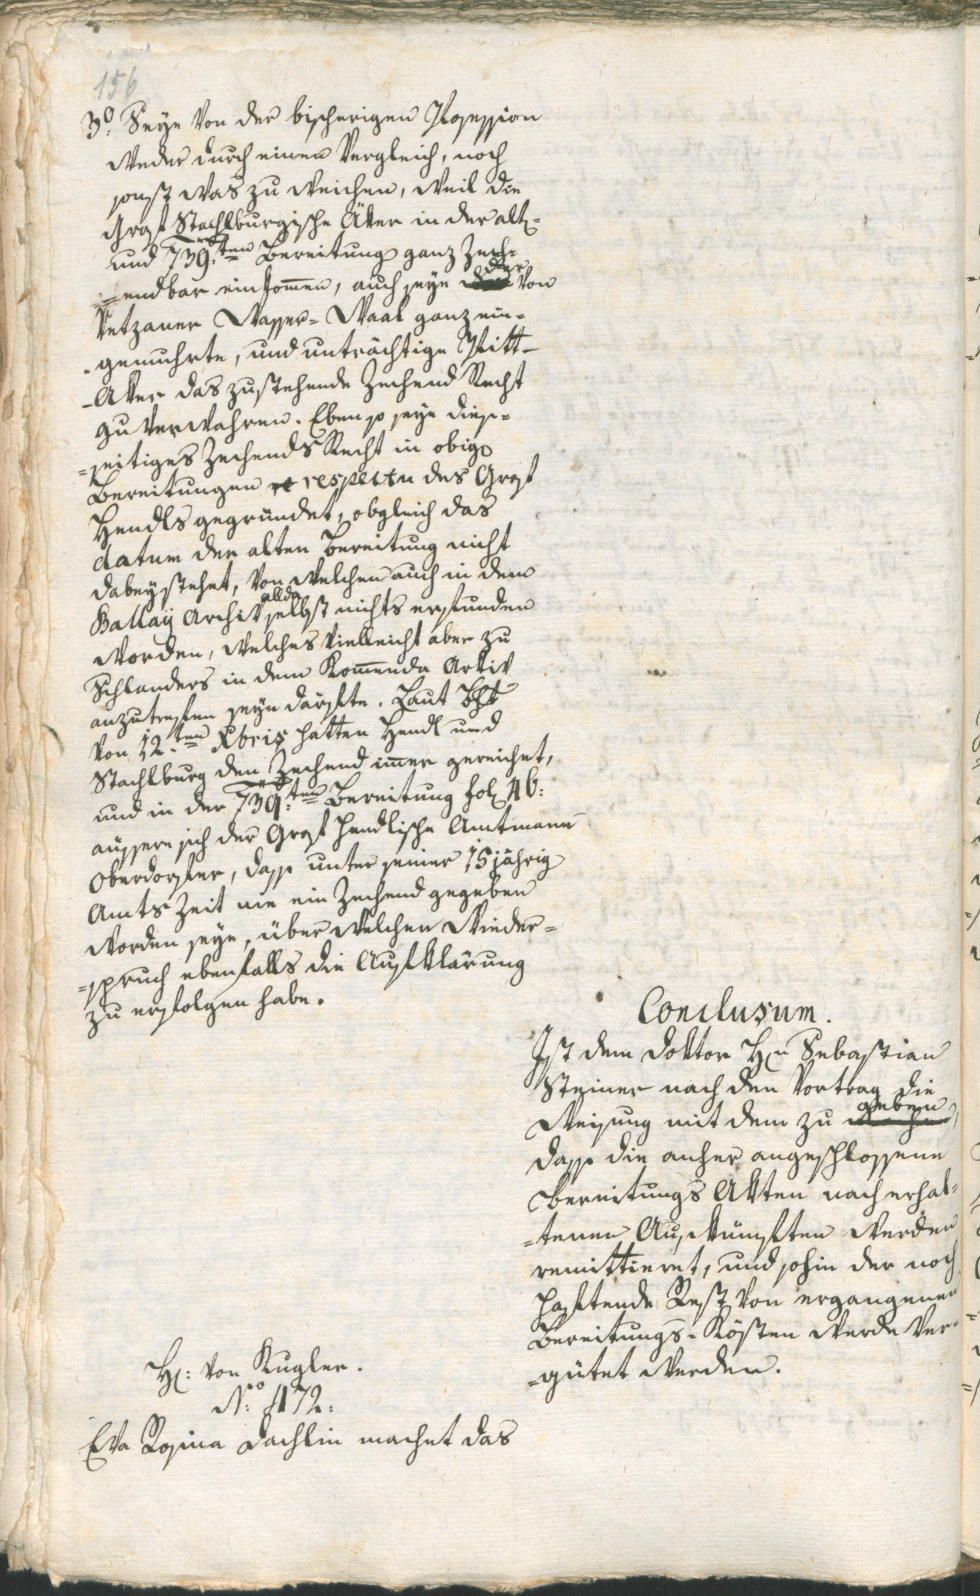 156
3o: Seye von der bisherigen Possession
weder durch einen Vergleich, noch
sonst was zu weichen, weil die
Graf Stachlburgische Äker in der alt-
und 739.ten Bereitung ganz Zech-
=endbar einkommen, auch seye der von
Vetzaner Wasser-Waal ganz ein-
-gemuhrte, und unträchtige Mitt-
-Aker das zustehende Zechend Recht
zu verwahren. Eben so seye dies-
=seitiges Zechends Recht in obige
Bereitungen respectu des Graf
Hendls gegründet, obgleich das
datum der alten Bereitung nicht
dabeystehet, von welchen auch in dem
Balley Archiv allda selbst nichts erfunden
worden, welches vielleicht aber zu
Schlanders in dem Kommenda Arkiv
anzutreffen seyn därfte. Laut
von 12.ten Xbris hatten Hendl und
Stachlburg den Zechend immer gereichet,
und in der 739.ten Bereitung fol. 46:
äussere sich der Graf Hendlische Amtmann
Oberdorfer, dass unter seiner 15 jährig
Amts Zeit nie ein Zechend gegeben
worden seye, über welchen Wieder-
=spruch ebenfalls die Aufklärung
zu erfolgen habe.
Conclusum.
Ist dem Doktor Hrn Sebastian
Steiner nach den Vortrag die
Weisung mit dem zu geben,
dass die anher angeschlossene
Bereitungs Akten nach erhal-
=tenen Auskünften werden
remittieret, und sohin der noch
haftende Rest von ergangenen
Bereitungs-Kösten werde ver-
=gütet werden.
H: von Kugler.
No: 472:
Eva Rosina Dachlin machet das